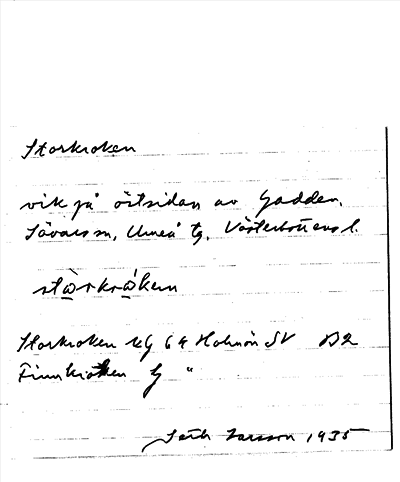 Storkroken
vik på östsidan av Gadden.
Sävars sn, Umeå tg, Västerbottens l.
Storkroken Kg 64 Holmön SV B2
Finnkroken Eg "
Seth Larsson 1935